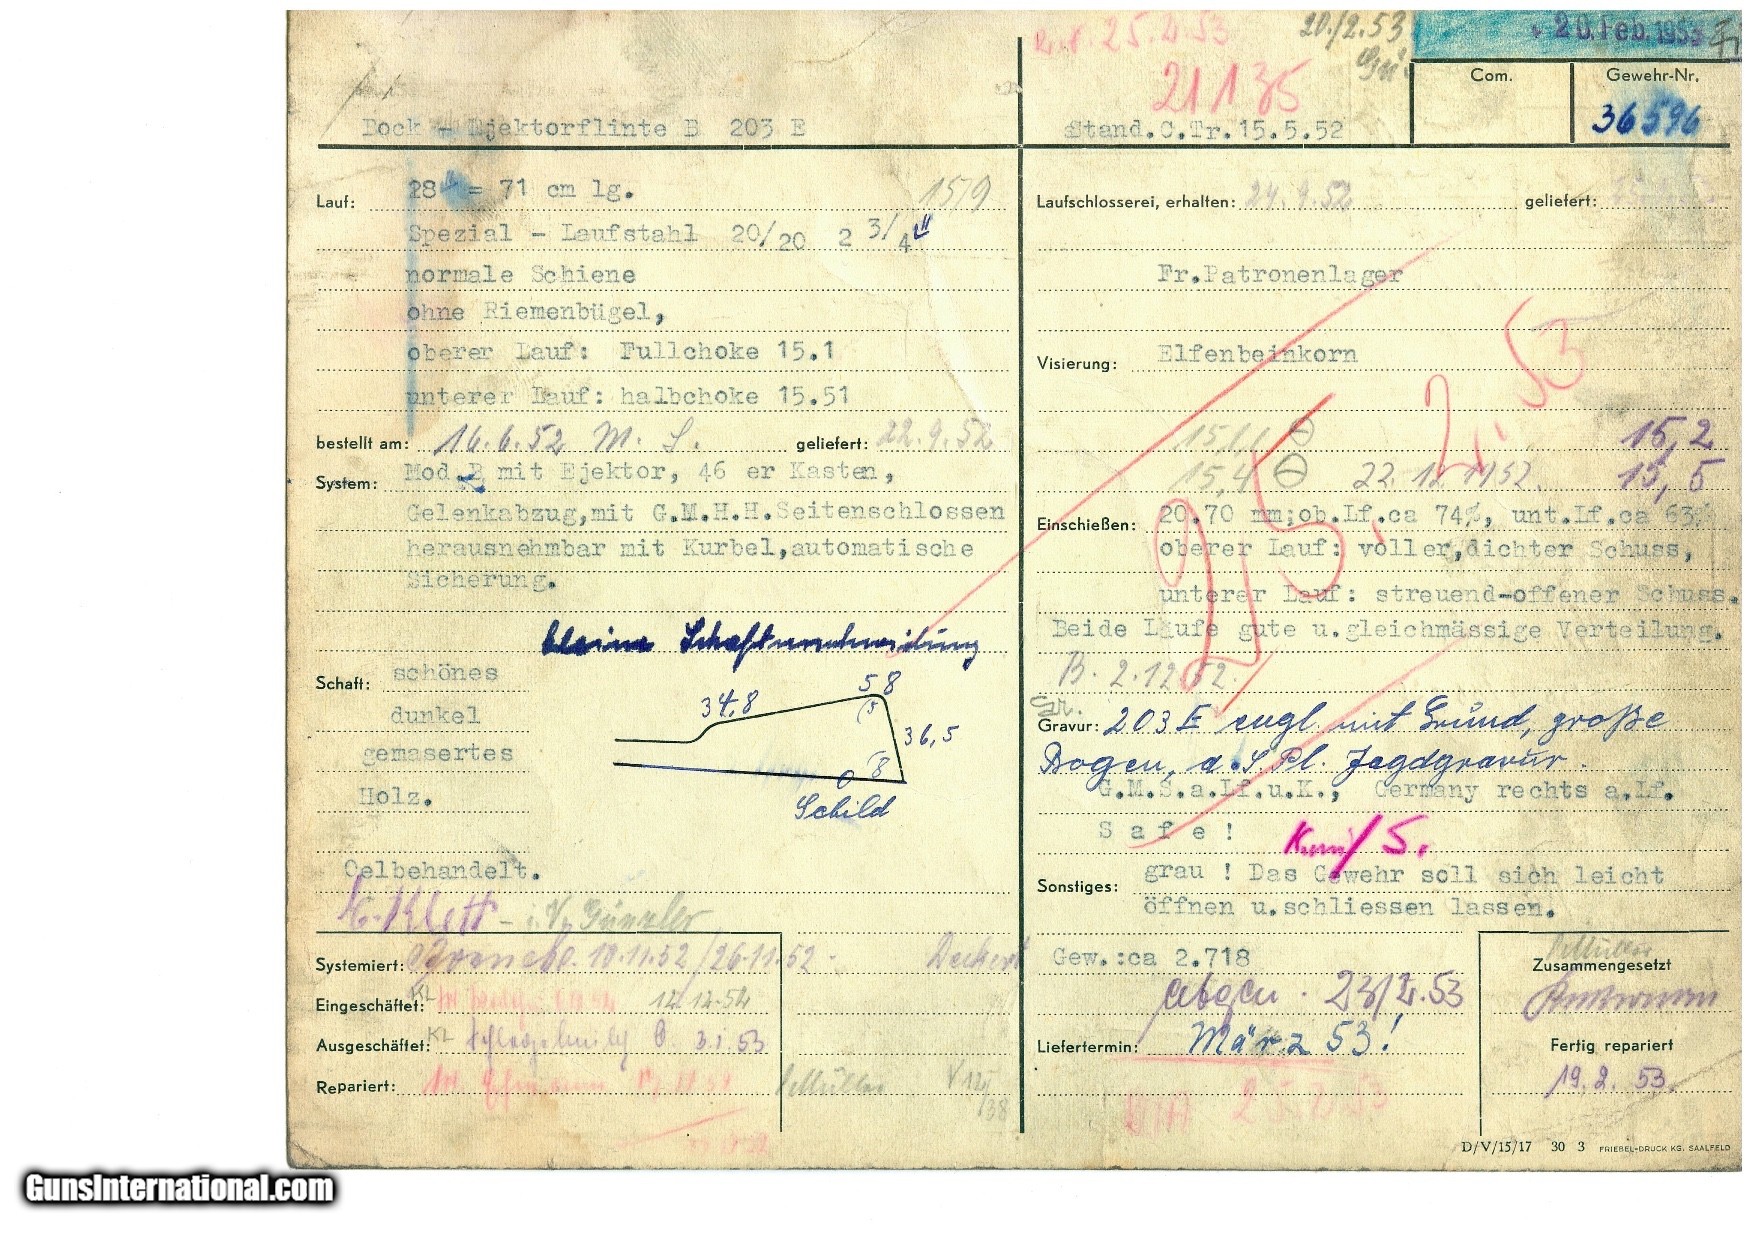 25.2.53
20./2.53
20. Feb. 1953
21135
Com.
Gewehr-Nr.
36596
Bock - Ejektorflinte B 203 E
Stand.C.Tr.15.5.52
Lauf: 28" = 71 cm lg.
1519
Spezial - Laufstahl 20/20 2 3/4"
normale Schiene
ohne Riemenbügel,
oberer Lauf: Fullchoke 15.1
unterer Lauf: halbchoke 15.51
bestellt am: 16.6.52 M. S. geliefert: 22.9.52
System: Mod. B mit Ejektor, 46 er Kasten,
Gelenkabzug,mit G.M.H.H.Seitenschlossen
herausnehmbar mit Kurbel,automatische
Sicherung.
kleine Schaftverschneidung
Schaft: schönes
dunkel
gemasertes
Holz.
34,8
58
36,5
8
Schild
Oelbehandelt.
Klett - i.V. Günzler
Systemiert: 18.11.52/26.11.52 Deckert
Eingeschäftet: KL 12.12.54
Ausgeschäftet: KL 3.1.53
Repariert: Müller
Laufschlosserei, erhalten: 24.9.52 geliefert:
Fr.Patronenlager
Visierung: Elfenbeinkorn
15,2
15,4 22.12.1952. 15,5
25.2.53
Einschießen: 20.70 mm;ob.Lf.ca 74%, unt.Lf.ca 63%
oberer Lauf: voller,dichter Schuss,
unterer Lauf: streuend-offener Schuss.
Beide Läufe gute u.gleichmässige Verteilung.
B. 2.12.52.
Gr.
Gravur: 203 E engl. mit Grund, große
Bogen, a.S.Pl. Jagdgravur.
G.M.S.a.Lf.u.K., Germany rechts a.Lf.
S a f e !
5.
Sonstiges: grau ! Das Gewehr soll sich leicht
öffnen u.schliessen lassen.
Gew.:ca 2.718
abgen. 23/2.53
Liefertermin: März 53!
25.2.53
Müller
Zusammengesetzt
Fertig repariert
19.2.53.
D/V/15/17 30 3 FRIEBEL-DRUCK KG. SAALFELD
GunsInternational.com